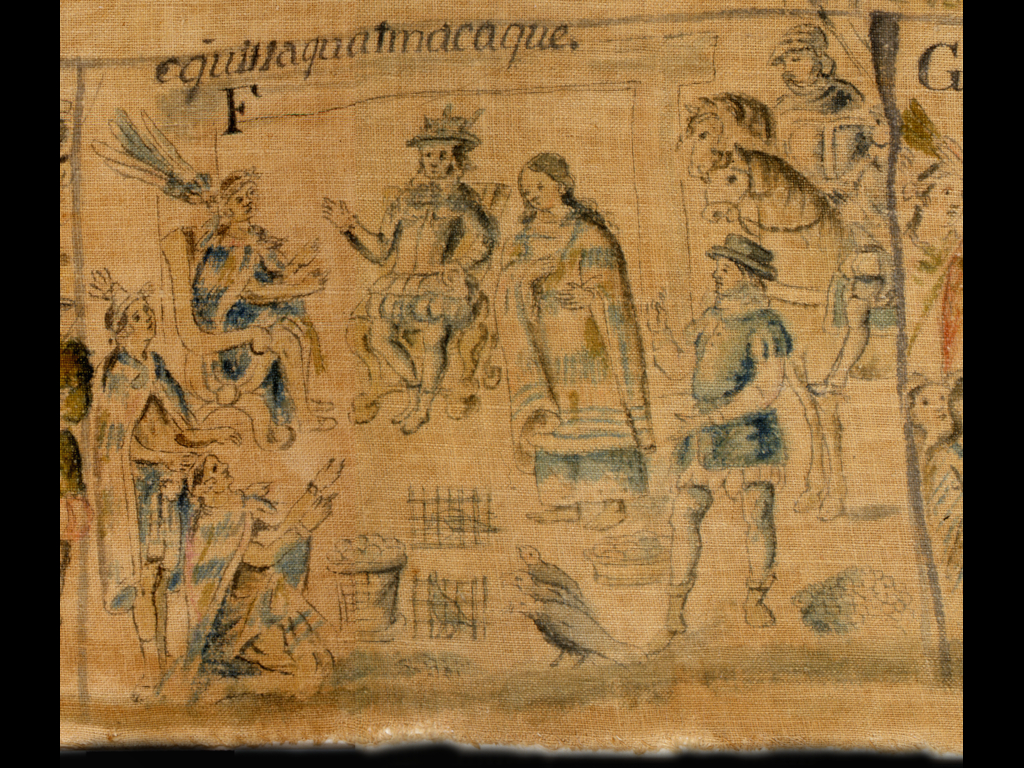 oquitlaqualmacaque.
F
G